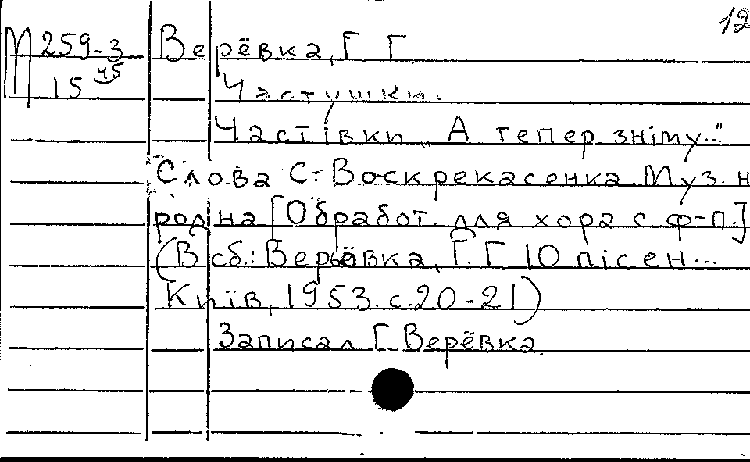 12
М 259-3 Верёвка, Г Г
15 45 Частушки.
Частівки „А тепер зніму..."
Слова С. Воскрекасенка Муз. н
родна [Обработ. для хора с ф-п.]
(В сб.: Верёвка, Г. Г 10 пісен...
Київ, 1953. с. 20-21)
Записал Г. Верёвка.